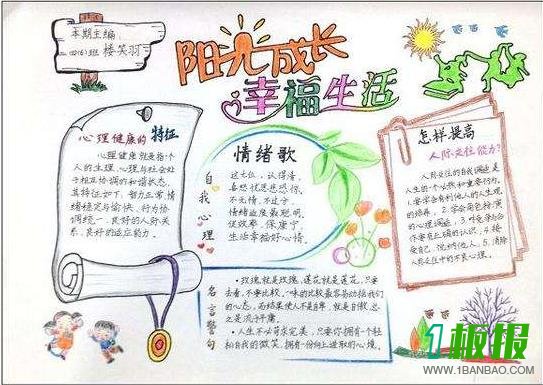 本期主编
四(6)班 楼笑羽
阳光成长
幸福生活
心理健康的特征
心理健康就是指个
人的生理、心理与社会处
于相互协调的和谐状态，
其特征如下：智力正常，情
绪稳定与愉快，行为协
调统一，良好的人际关
系，良好的适应能力。
自我心理
情绪歌
认得清，
喜怒忧思悲恐惊，
不无情，不过于，
情绪 最聪明，
促效率，保康宁，
生活幸福好心情。
怎样提高
人际交往能力？
人际交往的自我调适是
人生的 必然和重要行动。
1、要学会有利他人的人生观
的培养。2、学会角色扮演
的心理调适。3、
你要有正确的认识。4、接
受自己，悦纳他人。5、消除
人际交往中的不良心理。
名言警句
·玫瑰就是玫瑰，莲花就是莲花，只要
去看，不要比较。一味的比较最容易动摇我们
的心志，
·人生不必苛求完美，只要你拥有一个轻
松自我的微笑，拥有一份向上进取的心境。
1板报
WWW.1BANBAO.COM